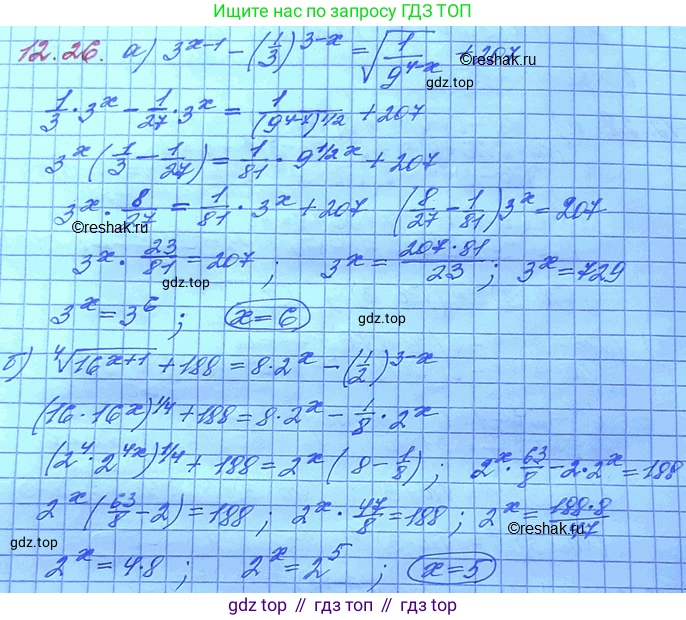 Ищите нас по запросу ГДЗ ТОП
12.26. а) 3^(x-1) - (1/3)^(3-x) = √(1/9^(4-x)) + 207
©reshak.ru
1/3 · 3^x - 1/27 · 3^x = 1/(9^(4-x))^(1/2) + 207
3^x (1/3 - 1/27) = 1/81 · 9^(1/2 x) + 207
3^x · 8/27 = 1/81 · 3^x + 207 (8/27 - 1/81) 3^x = 207
©reshak.ru
3^x · 23/81 = 207 ; 3^x = 207·81/23 ; 3^x = 729
gdz.top
3^x = 3^6 ; x = 6
gdz.top
б) ⁴√(16^(x+1)) + 188 = 8·2^x - (1/2)^(3-x)
(16·16^x)^(1/4) + 188 = 8·2^x - 1/8 · 2^x
(2^4 · 2^(4x))^(1/4) + 188 = 2^x (8 - 1/8) ; 2^x · 63/8 - 2·2^x = 188
gdz.top
2^x (63/8 - 2) = 188 ; 2^x · 47/8 = 188 ; 2^x = 188·8/47
©reshak.ru
gdz.top
2^x = 4·8 ; 2^x = 2^5 ; x = 5
gdz.top
gdz top // гдз топ // gdz top // гдз топ // gdz top